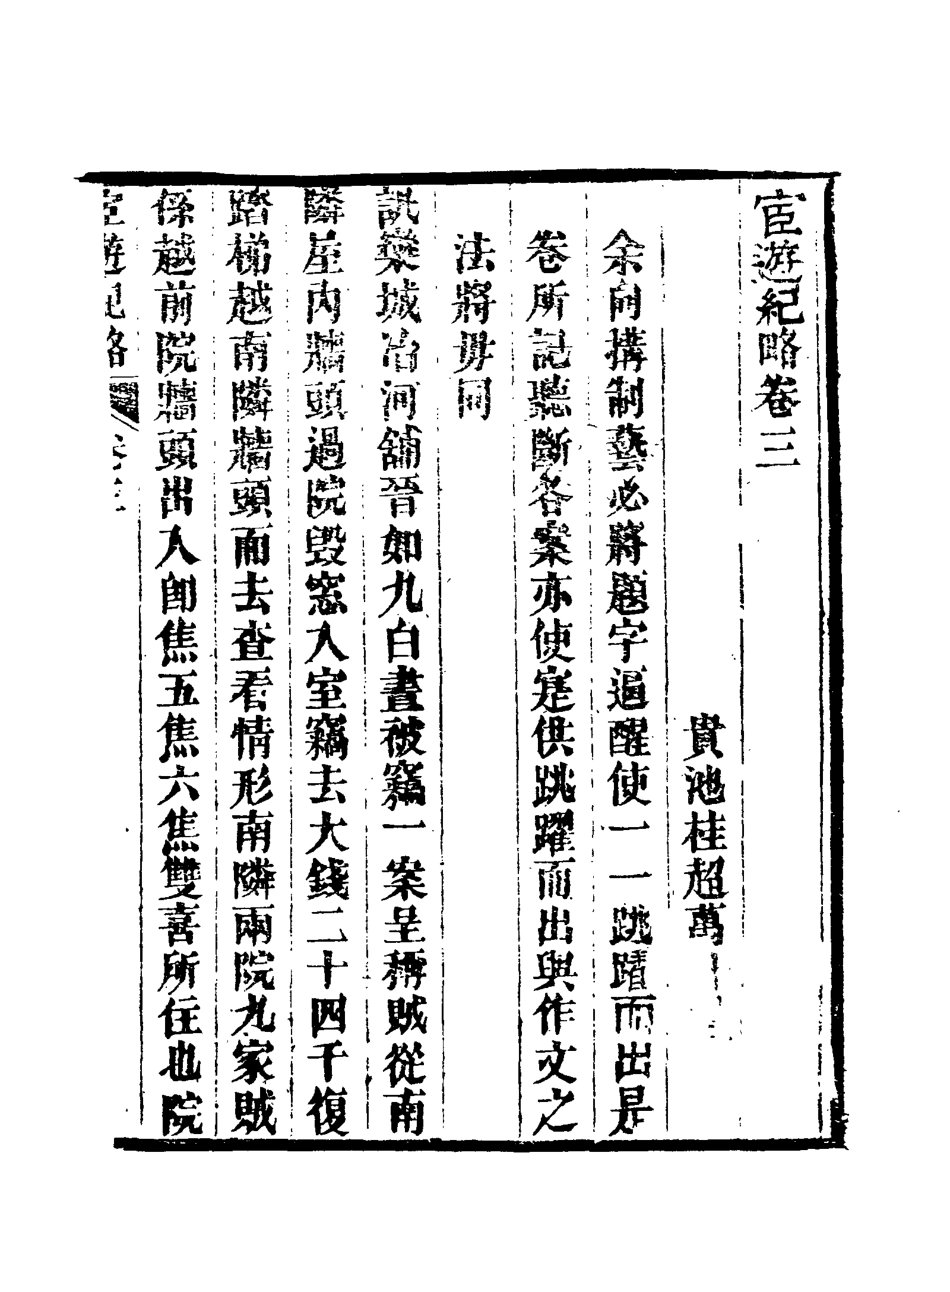 宦遊紀略卷三
貴池桂超萬
余向搆制藝必將題字逼醒使一一跳躍而出是
卷所記聽斷各案亦使寔供跳躍而出與作文之
法將毋同
訊欒城冶河舖晉如九白晝被竊一案呈稱賊從南
隣屋內牆頭過院毀窓入室竊去大錢二十四千復
踏梯越南隣牆頭而去查看情形南隣兩院九家賊
係越前院牆頭出入卽焦五焦六焦雙喜所住也院
宦遊紀略 卷三